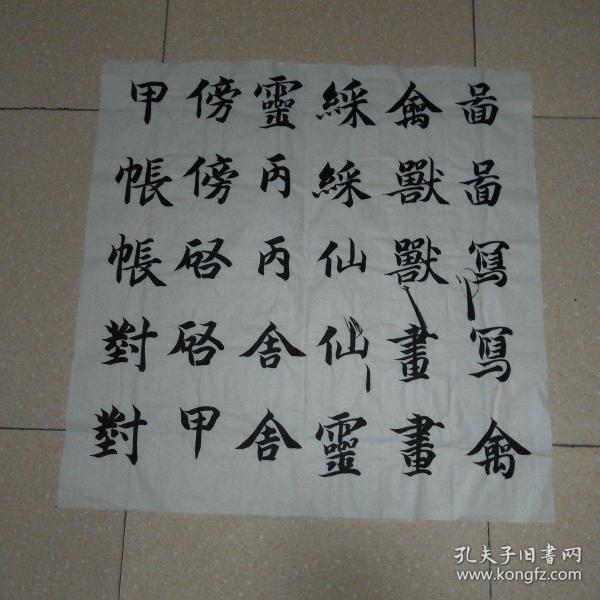 啚啚寫寫禽
禽獸獸畫畫
綵綵仙仙靈
靈丙丙舍舍
傍傍啓啓甲
甲帳帳對對
孔夫子旧书网
www.kongfz.com